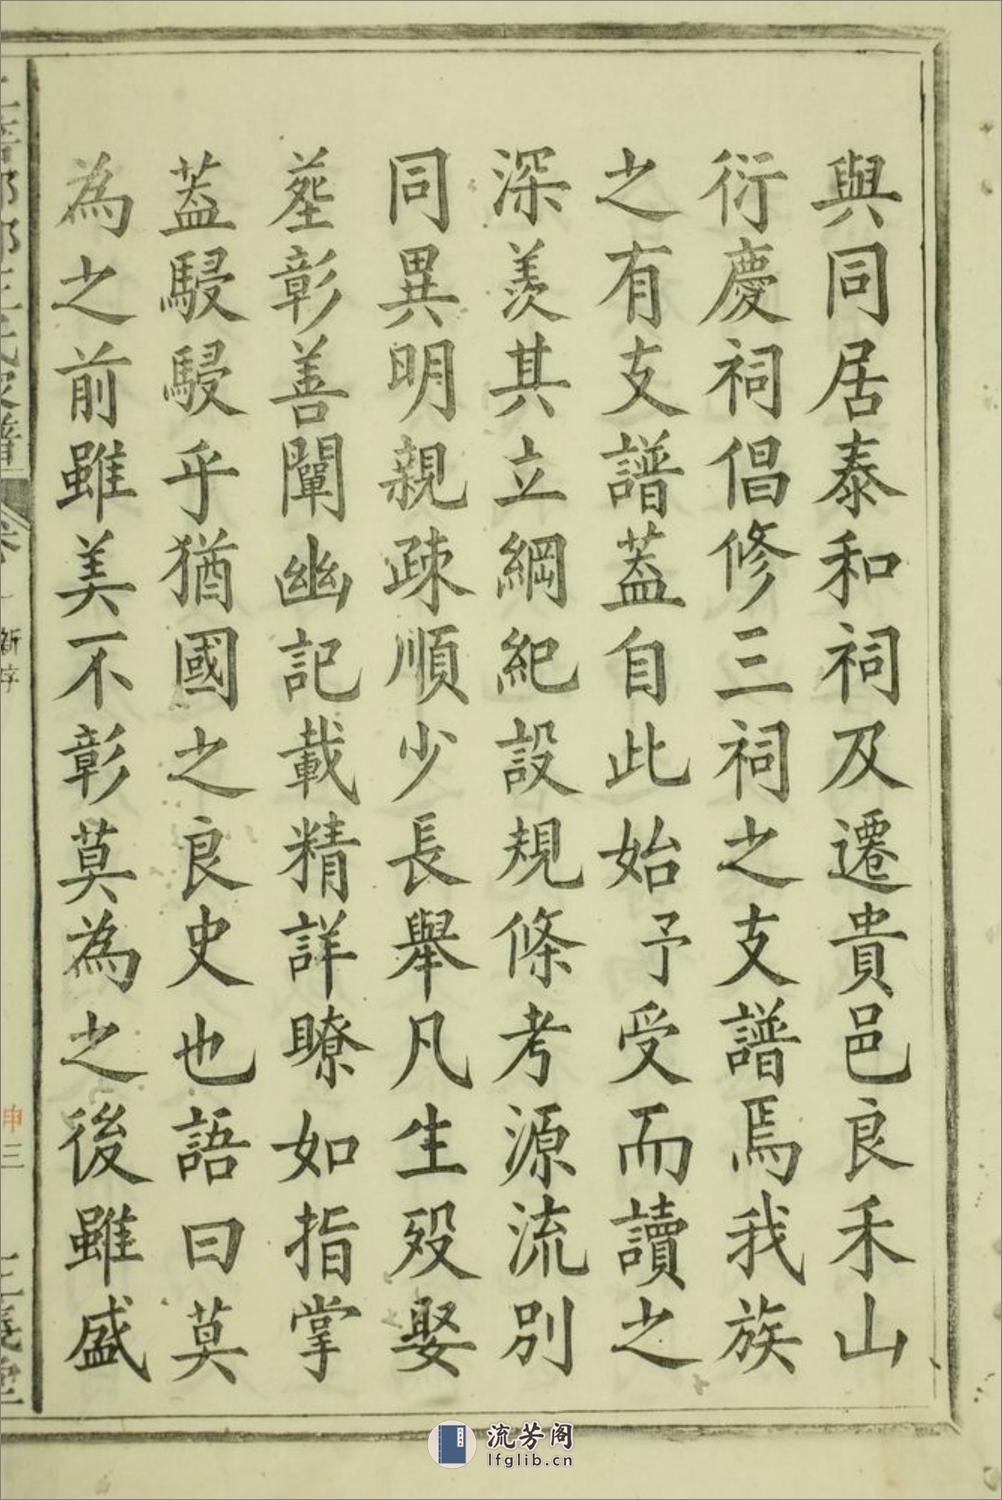 與同居泰和祠及遷貴邑良禾山
衍慶祠倡修三祠之支譜焉我族
之有支譜蓋自此始予受而讀之
深羨其立綱紀設規條考源流別
同異明親疎順少長舉凡生歿娶
塟彰善闡幽記載精詳瞭如指掌
蓋駸駸乎猶國之良史也語曰莫
為之前雖美不彰莫為之後雖盛
王氏家譜
卷 新序
三
三義堂
流芳阁
lfglib.cn